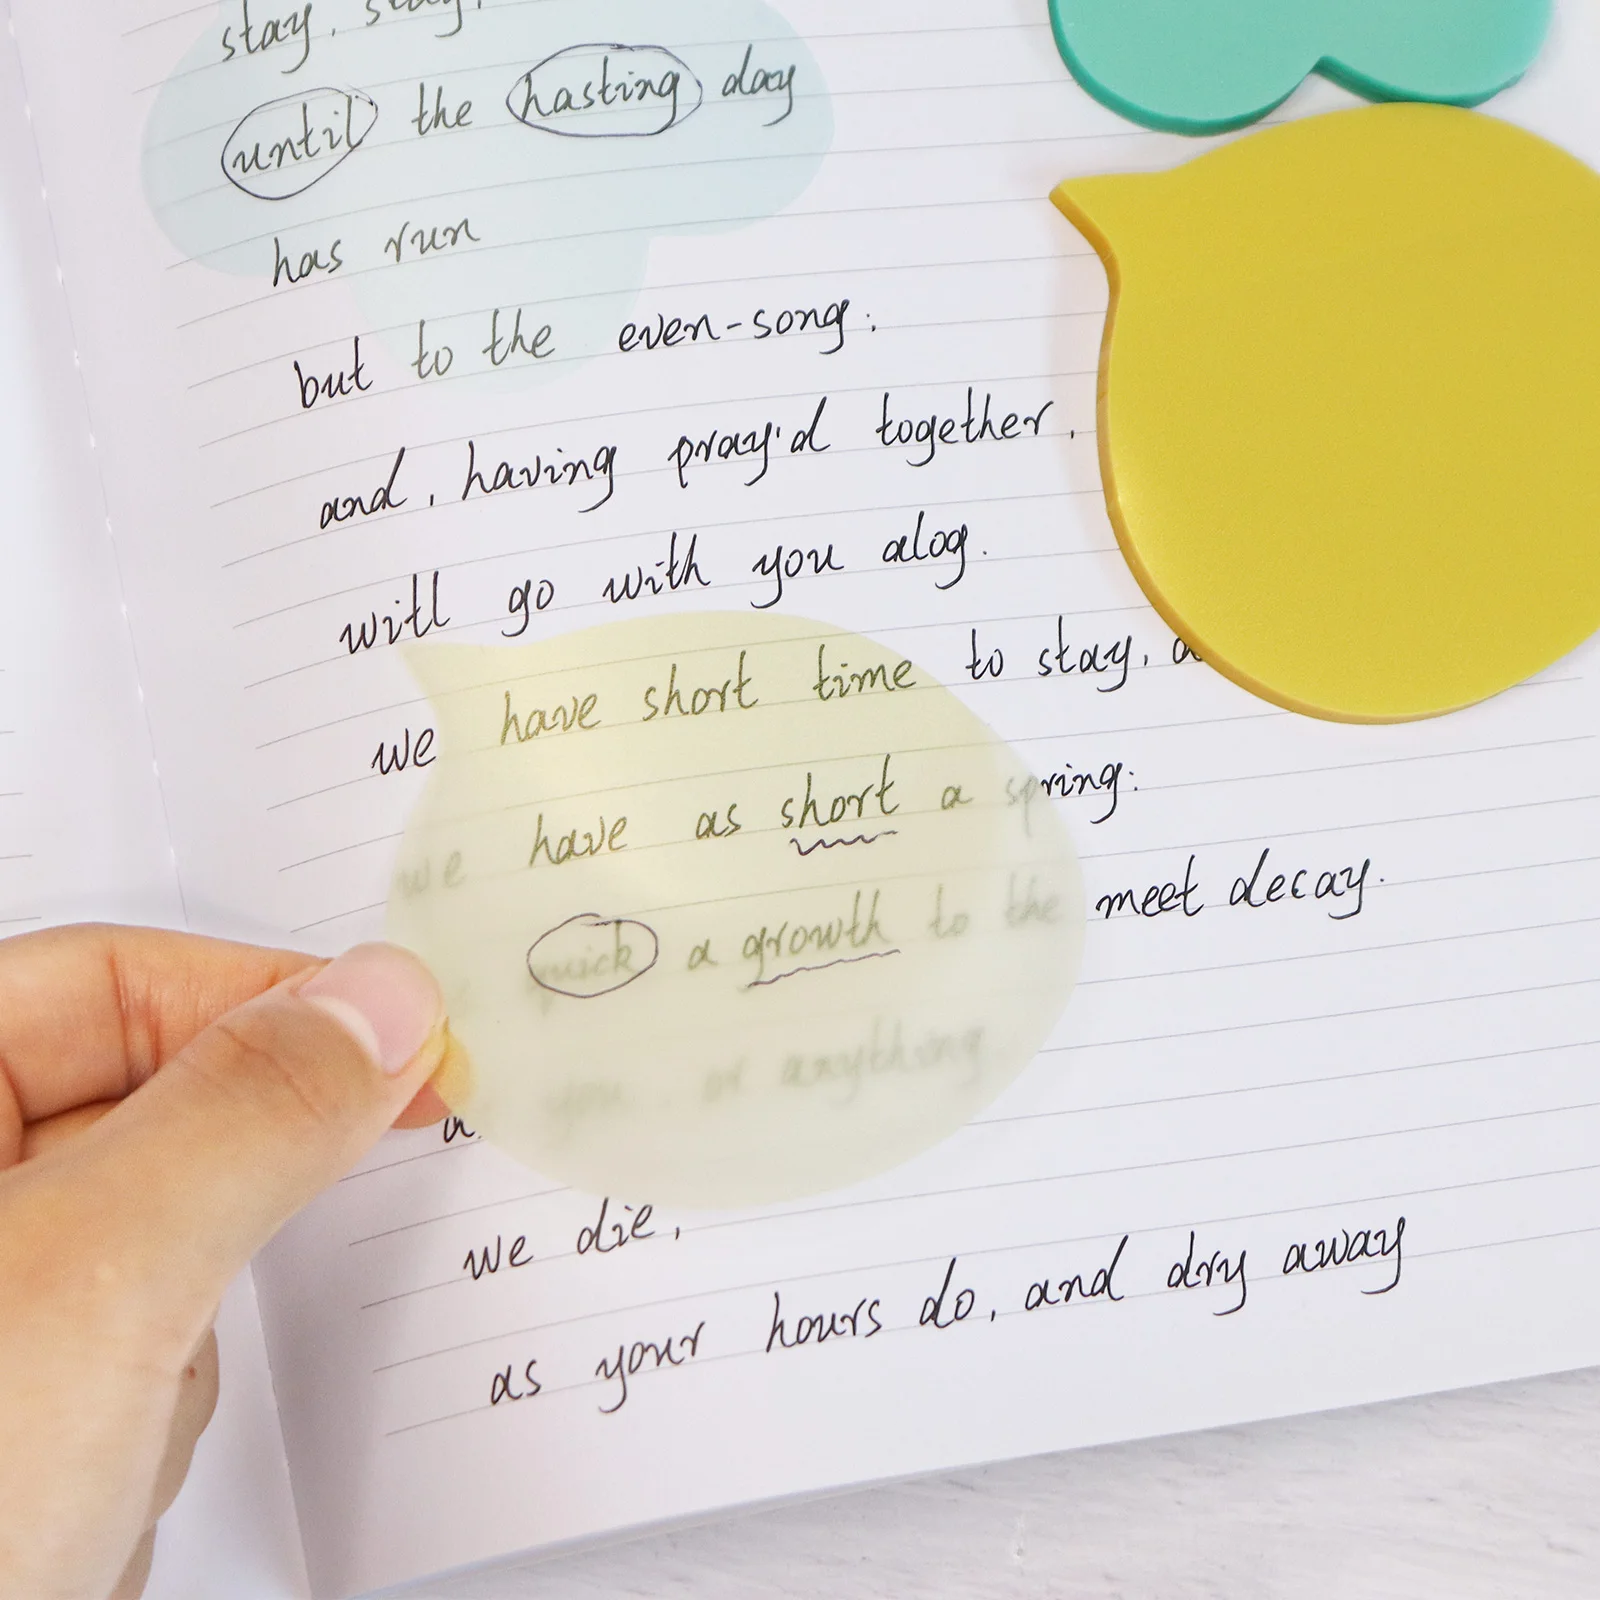 stay, stay,
until the hasting day
has run
but to the even-song:
and, having pray'd together,
will go with you alog.
we have short time to stay,
we have as short a spring:
quick a growth to the meet decay.
you, or anything.
we die,
as your hours do, and dry away